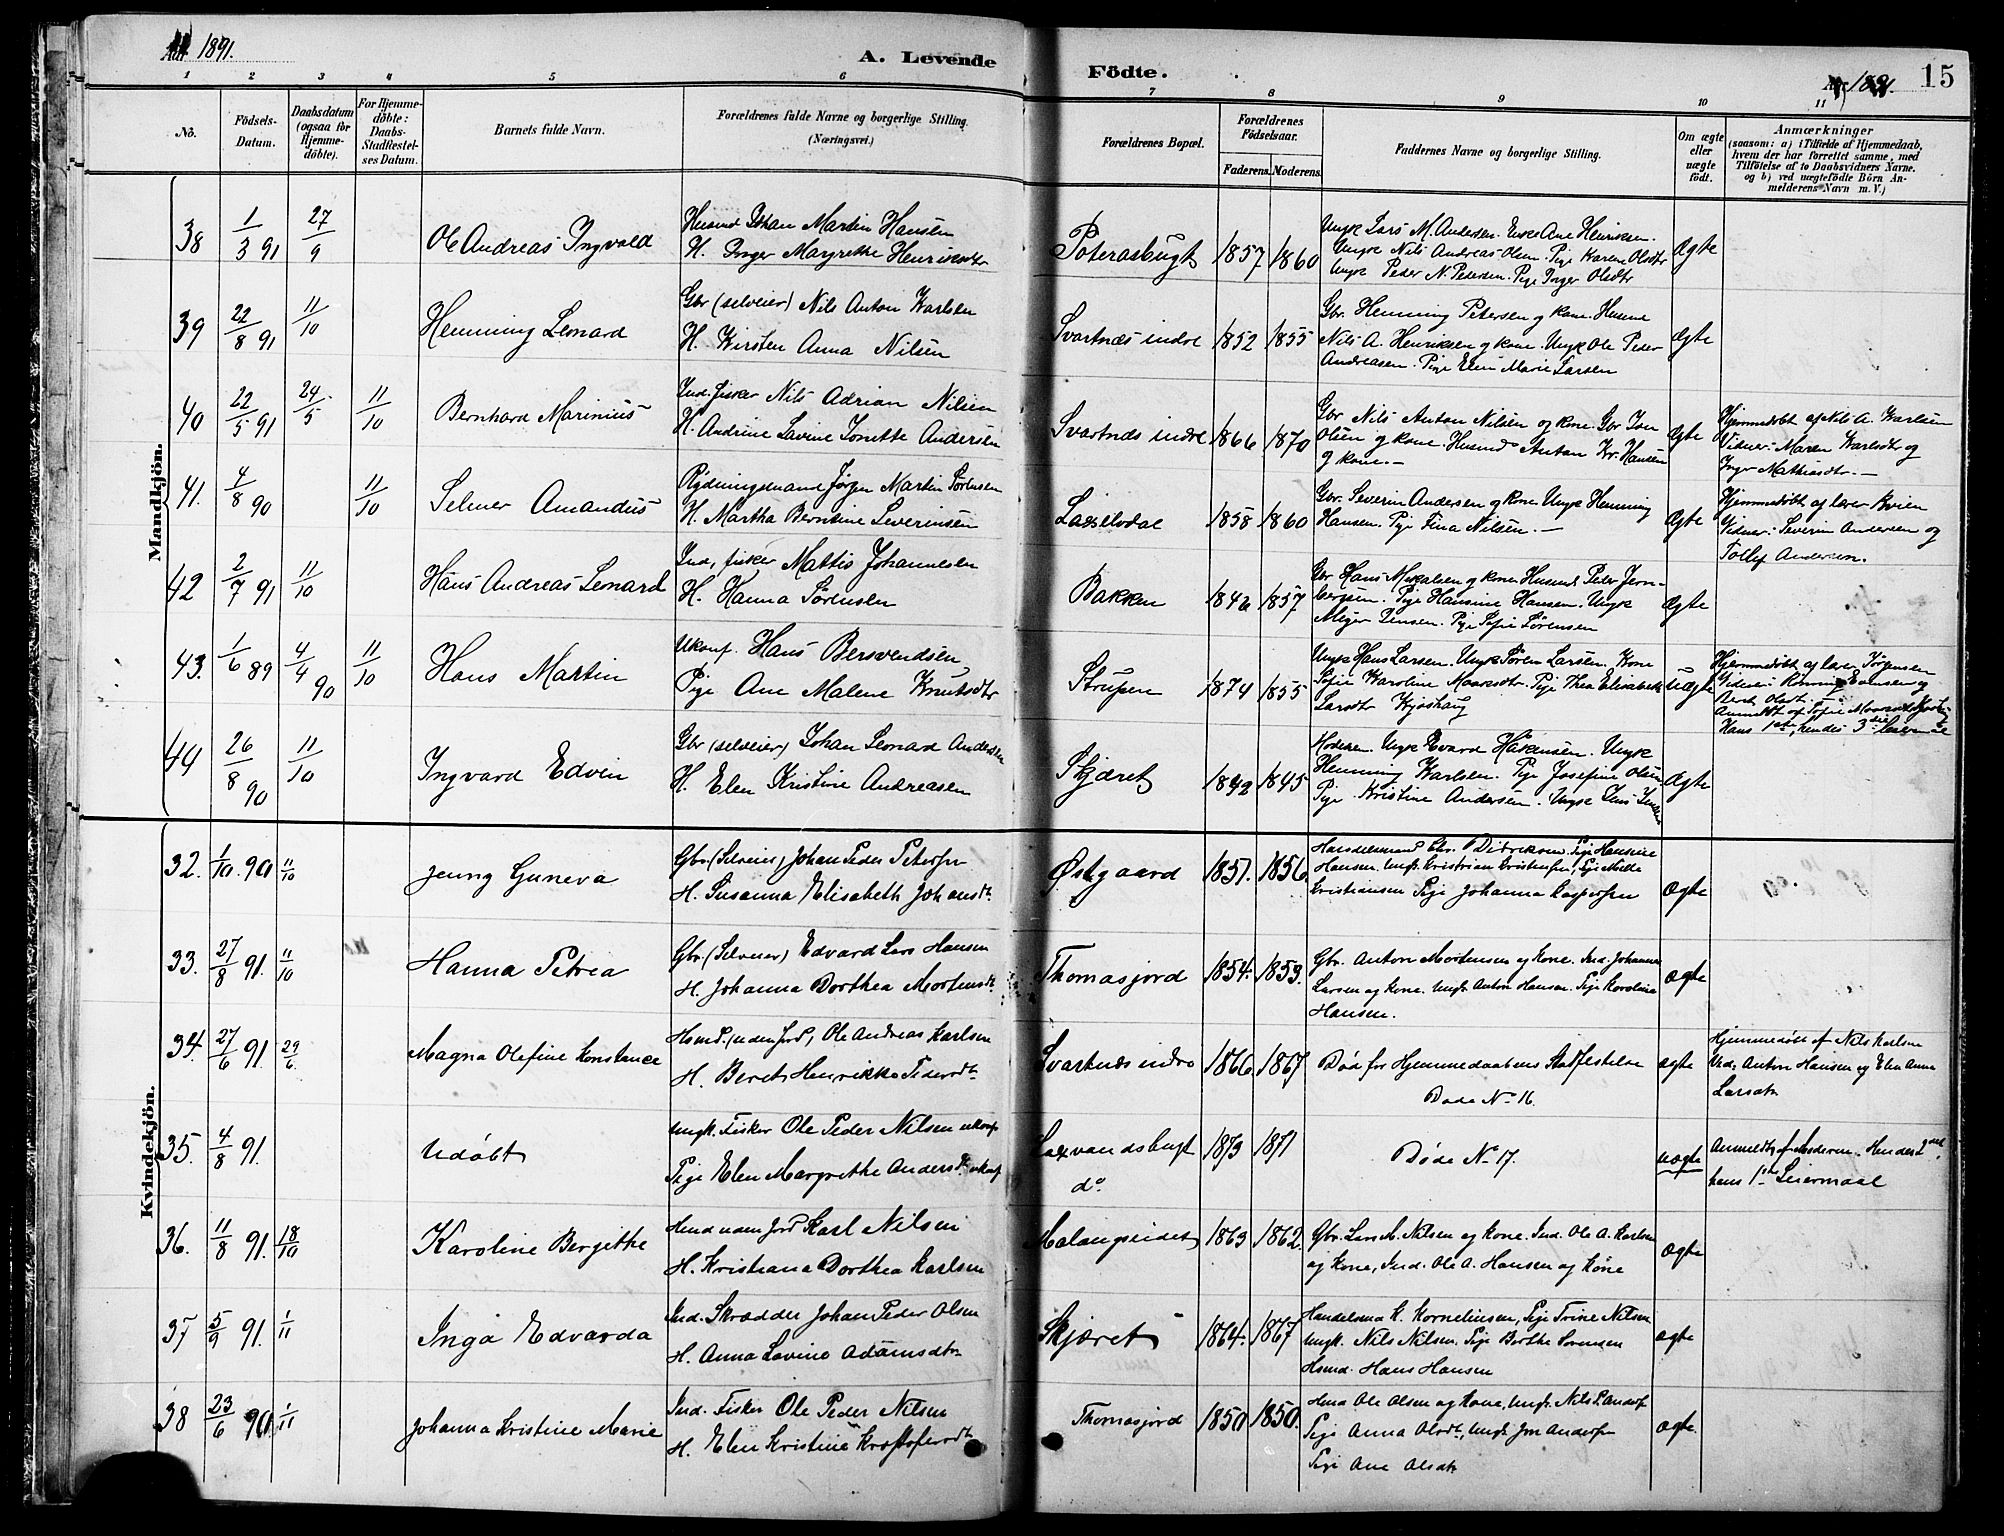 Aar 1891.
A. Levende
Födte.
1891.
15
1 2 3 4 5 6 7 8 9 10 11
No.
Födsels-Datum.
Daabsdatum (ogsaa for Hjemme-döbte).
For Hjemme-döbte: Daabs-Stadfestel-ses Datum.
Barnets fulde Navn.
Forældrenes fulde Navne og borgerlige Stilling.
(Næringsvei.)
Forældrenes Bopæl.
Forældrenes Födselsaar.
Faderens. Moderens.
Faddernes Navne og borgerlige Stilling.
Om ægte eller uægte födt.
Anmærkninger
(saasom: a) i Tilfælde af Hjemmedaab,
hvem der har forrettet samme, med
Tilföielse af to Daabsvidners Navne.
og b) ved uægtefödte Börn An-
melderens Navn m. V.)
Mandkjön.
38 1/3 91 27/9 Ole Andreas Ingvald
Husmd Johan Martin Hansen
H. Inger Margrethe Henriksdtr
Poterasbugt 1857 1860
Ungk Lars M. Andersen. Enke Ane Henriksen.
Ungk Nils Andreas Olsen Pige Karen Olsdtr
Ungk Peder N. Pedersen. Pige Inger Olsdtr
Ægte
39 22/8 91 11/10 Henning Leonard
Gbr (selveier) Nils Anton Karlsen
H. Kirsten Anna Nilsen
Svartnæs indre 1852 1855
Gbr. Henning Petersen og kone. Husmd
Nils A. Henriksen og kone. Ungk Ole Peder
Andreasen. Pige Elen Marie Larsen
Ægte
40 22/5 91 24/5 11/10 Bernhard Marinius
Ind. fisker Nils Adrian Nilsen
H. Andrine Lavine Jonette Andersen
Svartnæs indre 1866 1870
Gbr Nils Anton Nilsen og kone. Gbr Iver
Olsen og kone. Husmd Anton Kr. Hansen
og kone.-
Ægte
Hjemmedøbt af Nils A. Karlsen
Vidner: Maren Karlsdtr og
Inger Mathisdtr.-
41. 4/8 90 11/10 Selmer Amandus
Rydningsmand Jørgen Martin Sørensen
H. Martha Berntine Severinsen
Laxelvdal 1858 1860
Gbr. Severin Andersen og kone Ungk Henning
Hansen. Pige Fina Nilsen.-
Ægte
Hjemmedøbt af lærer
Vidner: Severin Andersen og
Tollef Andersen.
42 2/7 91 11/10 Hans Andreas Leonard
Ind. fisker Mattis Johannesen
H. Hanna Sørensen
Bakken 1846 1857
Gbr Hans Mikalsen og kone Husmd Peder Jern-
bergsen. Pige Hansine Hansen. Ungk
Meyer Jensen. Pige Sofie Sørensen
Ægte
43. 1/6 89 4/4 90 11/10 Hans Martin
Ukonf. Hans Bersvendsen,
Pige Ane Malene Knutsdtr
Strupen 1874 1855
Ungk Hans Larsen. Ungk Søren Larsen. Kone
Sofie Karoline Maaresdtr. Pige Thea Elisabeth
Larsdtr Kjoshaug
Uægte
Hjemmedøbt af lærer Jørgensen
Vidner: Rønning Evensen og
Berit Olsdtr
Hans 1ste, hendes 3die
44 26/8 90 11/10 Ingvard Edvin
Gbr (selveier) Johan Leonard Andersen
H. Elen Kristine Andreasen
Skjæret 1842 1845
Moderen. Ungk Evard Håkensen. Ungk
Henning Karlsen. Pige Josefine Olsen
Pige Kristine Andersen. Ungk Jens
Ægte
Kvindekjön.
32. 1/10. 90 11/10 Jenny Guneva
Gbr. (Selveier) Johan Peder Petersen
H. Susanna Elisabeth Johansdt.
Østgaard 1851. 1856.
Handelsmand Chr. Didriksen. Pige Hansine
Hansen. Ungk. Kristian Kristensen, Pige
Kristiansen Pige Johanna Kaspersen
Ægte
33. 27/8 91. 11/10 Hanna Petrea
Gbr. (Selveier) Edvard Lars Hansen
H. Johanna Dorthea Mortensdt.
Thomasjord 1854. 1853.
Gbr. Anton Mortensen og Kone. Ind. Johannes
Larsen og kone. Ungk. Anton Hansen. Pige Karolina
Hansen.
Ægte
34. 27/6 91 29/6 Magna Olefine Konstance
Hsmd. (uden Jord) Ole Andreas Karlsen
H. Beret Henrikke Pedersdt.
Svartnæs indre 1866. 1867
Død før Hjemmedaabens Stadfestelse
Døde No 16.
ægte
Hjemmedøbt af Nils Karlsen
Vid: Anton Hansen og Elen Anna
Larsdtr
35. 4/8 91. Udøbt
Ungk. Fisker Ole Peder Nilsen ukonf
Pige Elen Margrethe Andersdt. ukonf
Laxvandsbugt 1873 1871
do.
Døde No 17.
uægte
Anmeldt af Faderen. Hendes 2det
hans 1ste Leiermaal
36. 11/8 91. 18/10 Karoline Bergethe
Hmd uden Jord Karl Nilsen
H. Kristiana Dorthea Karlsen
Malangseidet 1863 1862.
Gbr. Lars M. Nilsen og Kone. Ind. Ole A. Karlsen
og Kone, Ind. Ole A. Hansen og Kone
Ægte
37 5/9 91. 1/11 Inga Edvarda
Ind. Skrædder Johan Peder Olsen
H. Anna Lavine Adamsdtr
Skjæret 1864. 1867
Handelsma K. Korneliussen, Pige Trine Nilsen
Ungk. Nils Nilsen. Pige Berthe Sørensen
Hsmd. Hans Hansen
ægte
38 23/6 90. 1/11 Johanna Kristine Marie
Ind. Fisker Ole Peder Nilsen
H. Elen Kristine Kristofersdt.
Thomasjord 1850 1850.
Hmd Ole Olsen og Kone, Ungk. Nils P. Anders.
Pige Anna Olsdt, Ungk. Andersen
Pige Ane Olsdtr
ægte.